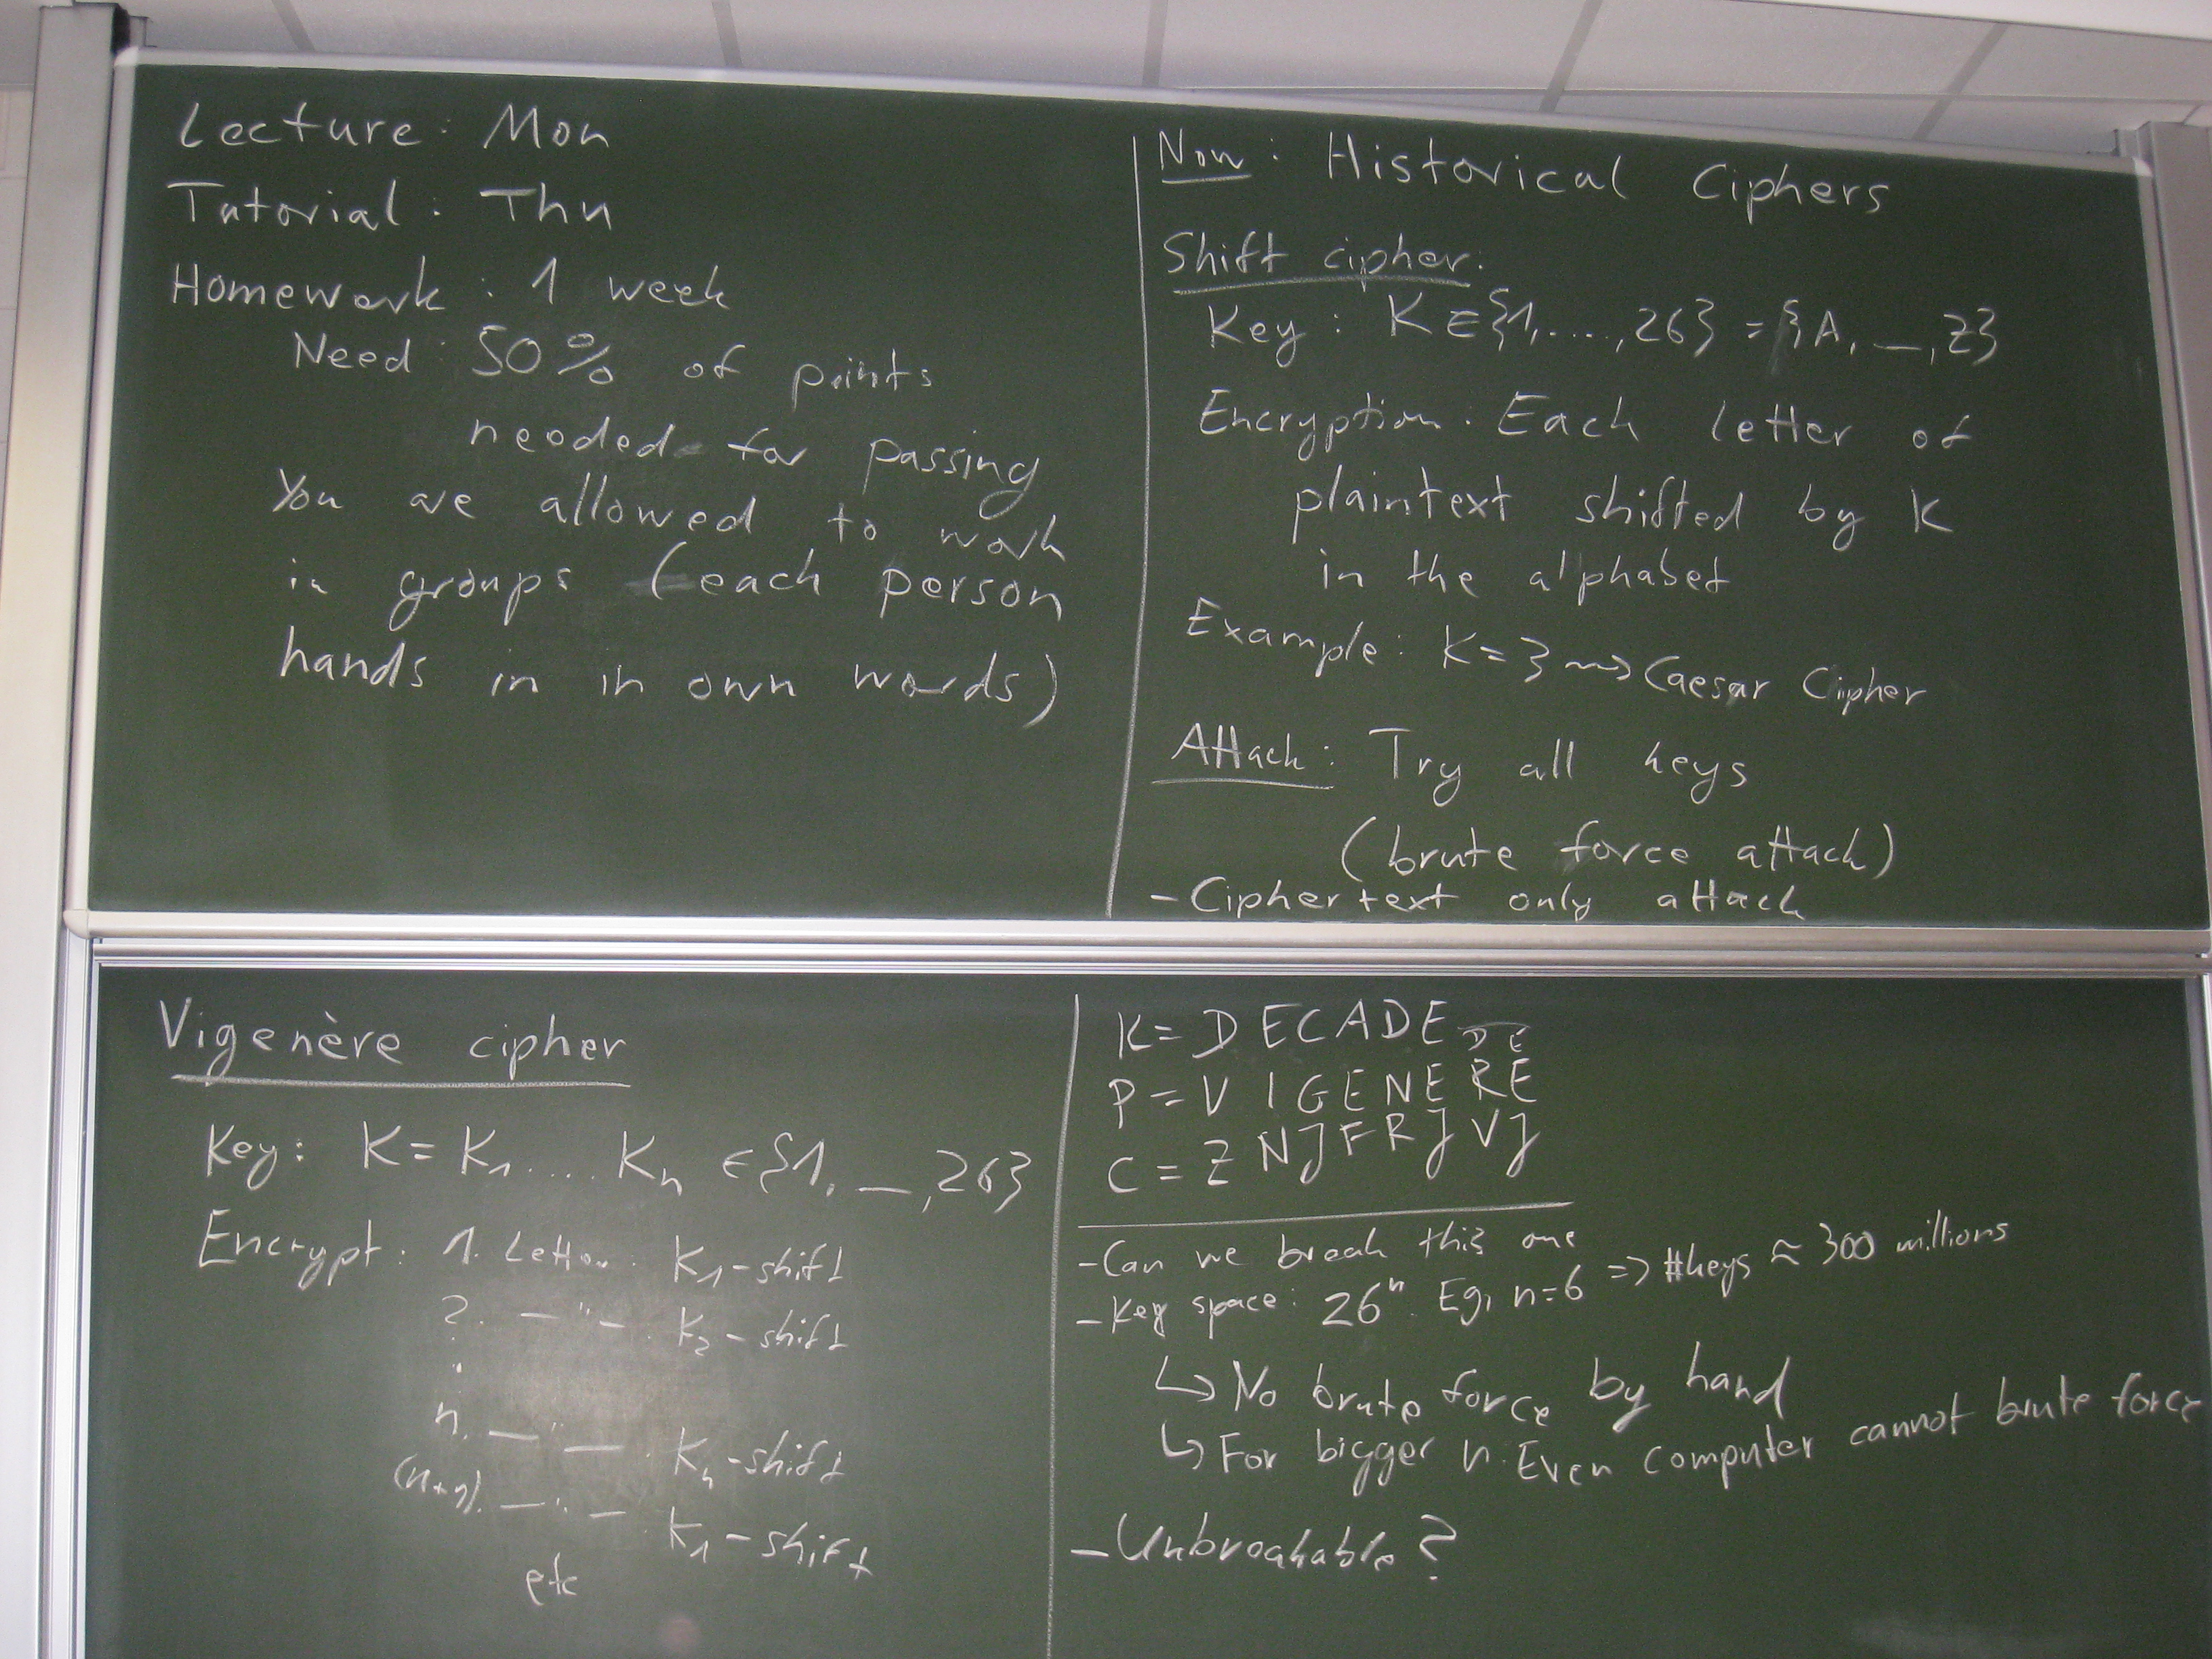 Lecture: Mon
Tutorial: Thu
Homework: 1 week
Need: 50% of points
needed for passing
You are allowed to work
in groups (each person
hands in in own words)
Now: Historical Ciphers
Shift cipher:
Key: K ∈ {1, ...., 26} = {A, _, Z}
Encryption: Each letter of
plaintext shifted by K
in the alphabet
Example: K=3 ⇝ Caesar Cipher
Attack: Try all keys
(brute force attack)
- Ciphertext only attack
Vigenère cipher
Key: K = K₁ .... Kₙ ∈ {1, _, 26}
Encrypt: 1. Letter: K₁-shift
2. — " — K₂-shift
:
n. — " — Kₙ-shift
(n+1). — " — K₁-shift
etc
K = DECADE DE
P = VIGENERE
C = ZNJFRJVJ
- Can we break this one
- Key space: 26ⁿ. Eg, n=6 => #keys ≈ 300 millions
↳ No brute force by hand
↳ For bigger n: Even computer cannot brute force
- Unbreakable?